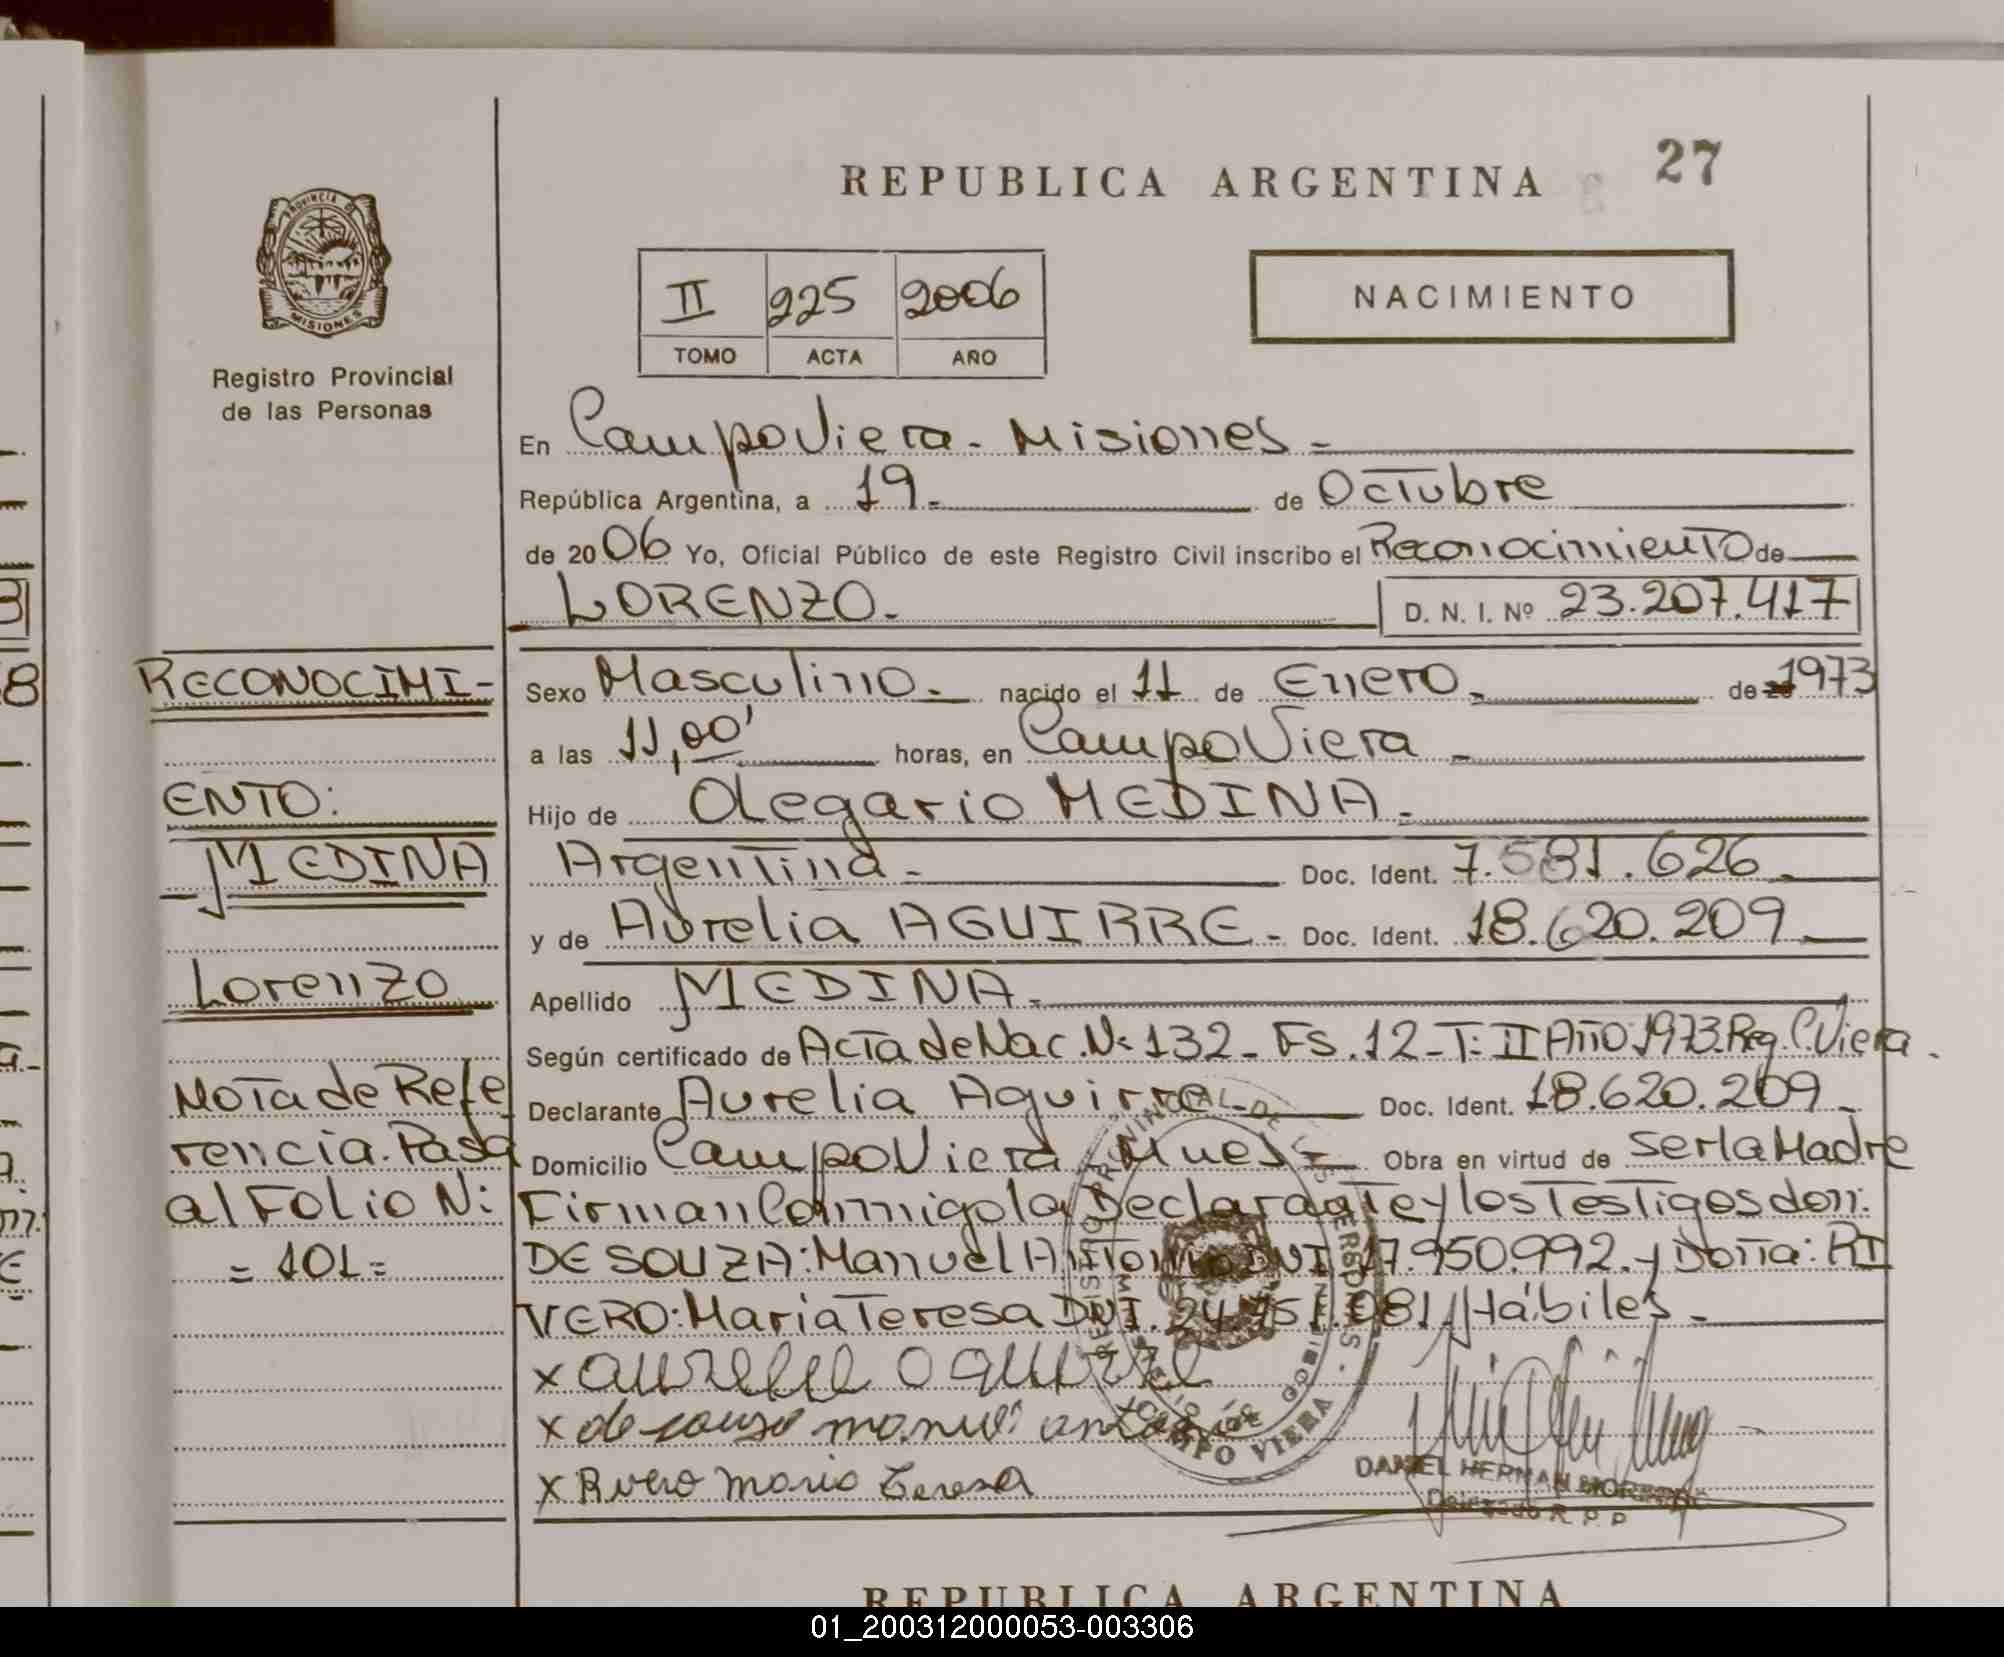 REPUBLICA ARGENTINA
27
PROVINCIA DE
MISIONES
Registro Provincial
de las Personas
II 225 2006
TOMO ACTA AÑO
NACIMIENTO
En Campo Viera - Misiones =
República Argentina, a 19.- de Octubre
de 2006 Yo, Oficial Público de este Registro Civil inscribo el Reconocimiento de
LORENZO.- D. N. I. Nº 23.207.417
Sexo Masculino.- nacido el 11 de Enero.- de 1973
a las 11,00' horas, en Campo Viera -
Hijo de Olegario MEDINA.-
Argentina.- Doc. Ident. 7.581.626.-
y de Aurelia AGUIRRE.- Doc. Ident. 18.620.209.-
Apellido MEDINA.-
Según certificado de Acta de Nac. Nº 132- Fs. 12-T: II Año 1973. Reg. C. Viera.
Declarante Aurelia Aguirre.- Doc. Ident. 18.620.209.-
Domicilio Campo Viera Mnes.- Obra en virtud de ser la Madre
Firman Conmigo la Declarante y los Testigos don:
DE SOUZA: Manuel Antonio DNI 17.950.992. y Doña: RI
VERO: Maria Teresa DNI. 24.751.081. Hábiles.-
x aurelia aguirre
x de souza manuel antonio
x Rivero Maria Teresa
DANIEL HERNAN
Delegado R. P. P
RECONOCIMI-
ENTO:
MEDINA
Lorenzo
Nota de Refe
rencia. Pasa
al Folio Nº:
= 101 =
REGISTRO PROVINCIAL DE LAS PERSONAS.
CAMPO VIERA
REPUBLICA ARGENTINA
01_200312000053-003306